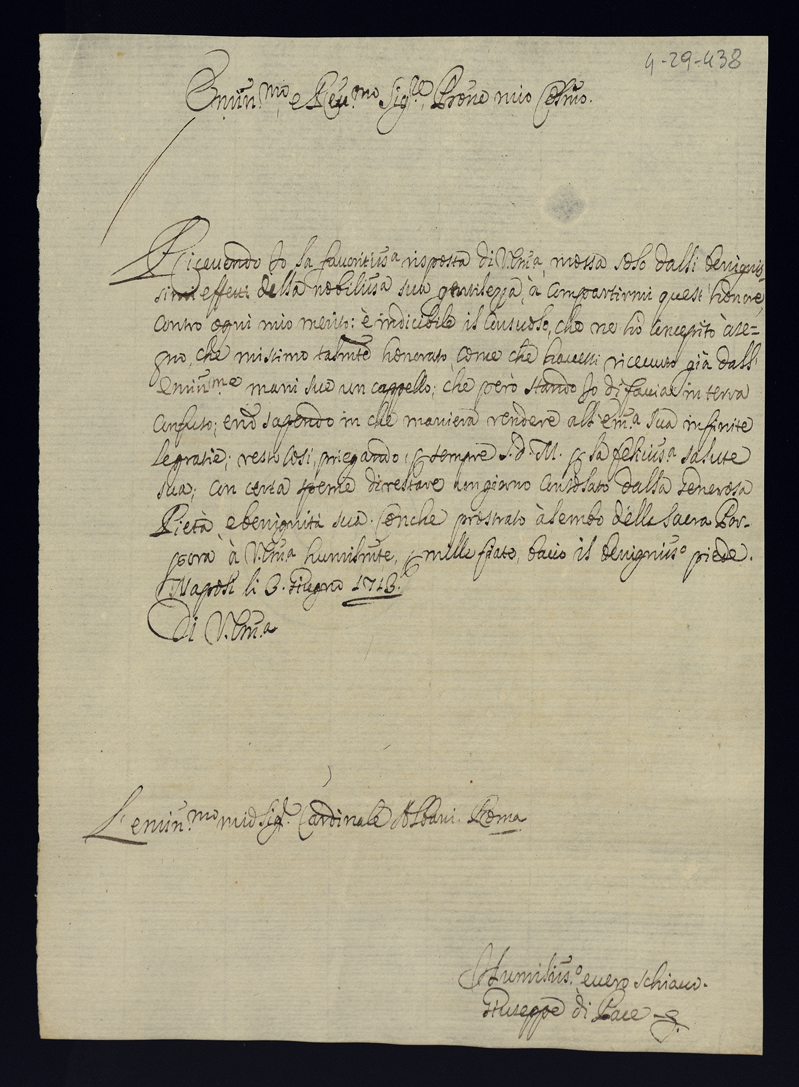 4-29-438
Emin.mo e Reu.mo Sig.re Prone mio Colmo.
Riceuendo Io la fauoritiss.a risposta di V. Em.a, mossa solo dalli benignis-
simi effetti della nobiliss.a sua gentilezza, à compartirmi quest'honore,
contro ogni mio merito: è indicibile il consuolo, che ne hò conceputo à se-
gno, che mi stimo talmte honorato come che hauessi riceuuto già dall'
Emin.me mani sue un cappello; che però stando Io di faccia in terra
confuso; e nō sapendo in che maniera rendere all'em.a sua infinite
le gratie; resto così, priegando, sempre S. d. M. la feliciss.a salute
sua; con certa speme di restare un giorno consolato dalla generosa
Pietà, e benignità sua. Conche prostrato à lembo della sacra Por-
pora à V. Em.a humilmte, mille fiate, bacio il benigniss.o piede.
Napoli li 3. Giugno 1713.
Di V. Em.a
L'emin.mo mio Sig.r Cardinale Albani. Roma
Humiliss.o e uero schiauo.
Giuseppe di Pace